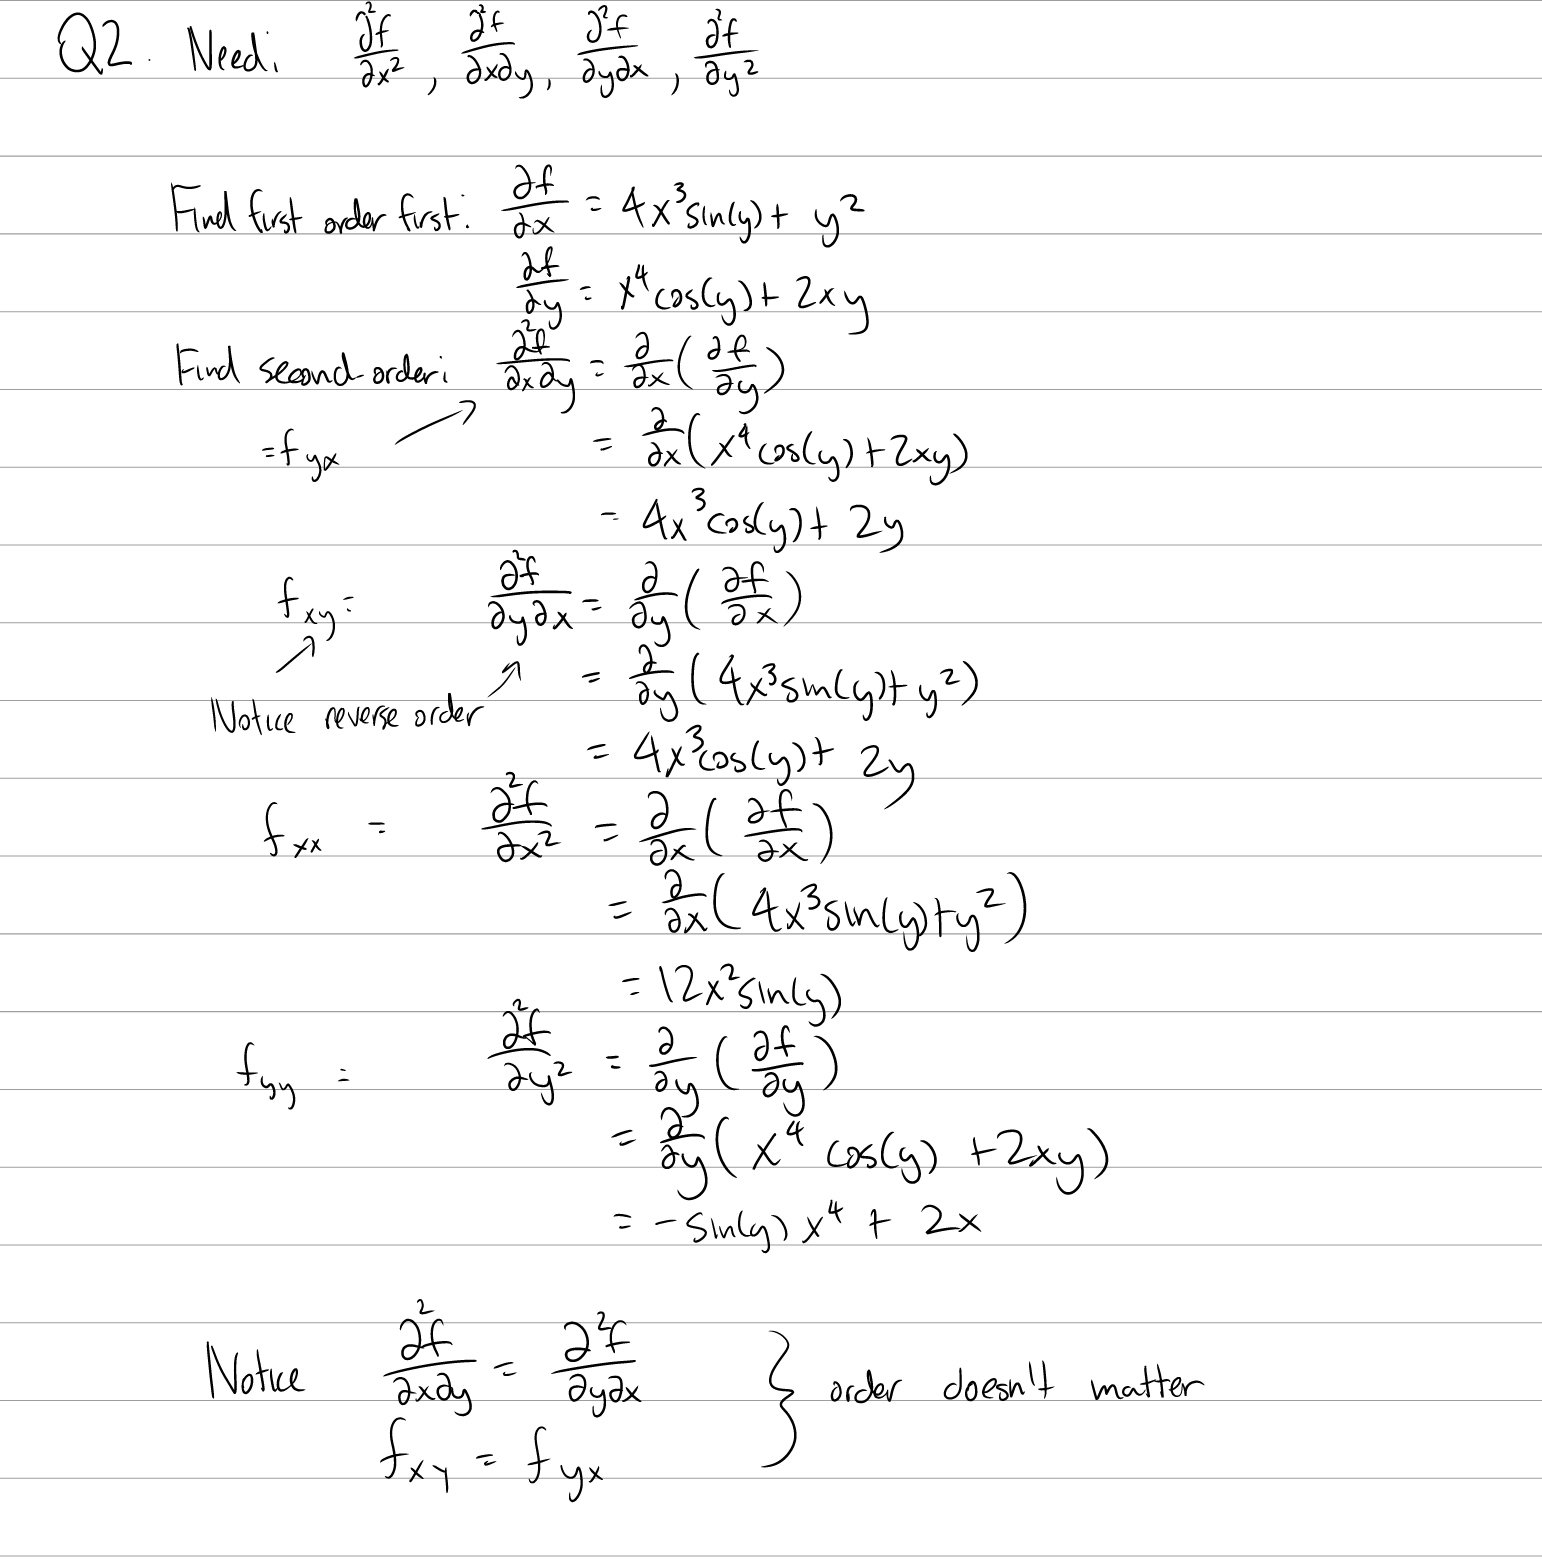 Q2. Need: ∂²f/∂x², ∂²f/∂x∂y, ∂²f/∂y∂x, ∂²f/∂y²
Find first order first: ∂f/∂x = 4x³sin(y) + y²
∂f/∂y = x⁴cos(y) + 2xy
Find second-order: ∂²f/∂x∂y = ∂/∂x(∂f/∂y)
=f_yx → = ∂/∂x(x⁴cos(y)+2xy)
= 4x³cos(y) + 2y
f_xy = ∂²f/∂y∂x = ∂/∂y(∂f/∂x)
= ∂/∂y(4x³sin(y)+y²)
Notice reverse order
= 4x³cos(y) + 2y
f_xx = ∂²f/∂x² = ∂/∂x(∂f/∂x)
= ∂/∂x(4x³sin(y)+y²)
= 12x²sin(y)
f_yy = ∂²f/∂y² = ∂/∂y(∂f/∂y)
= ∂/∂y(x⁴ cos(y) +2xy)
= -sin(y)x⁴ + 2x
Notice ∂²f/∂x∂y = ∂²f/∂y∂x } order doesn't matter
f_xy = f_yx